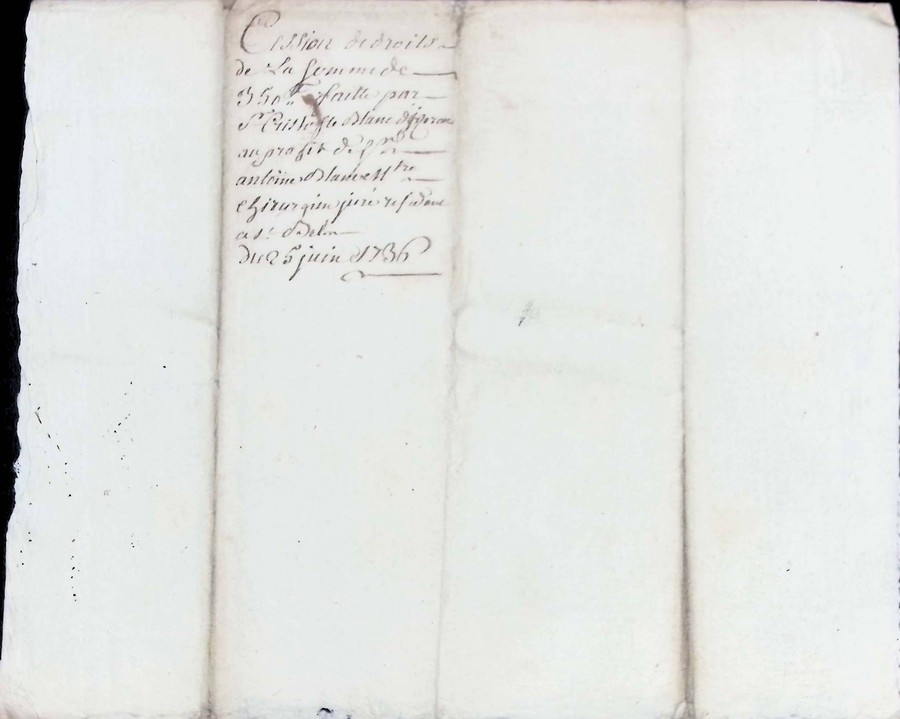 Cession de droits
de La somme de
350 tt faitte par
Sr Cristofle Blanc
au profit de Sr
antoine Blanc Mtre
chirurgien juré residant
a st
Du 25 juin 1736